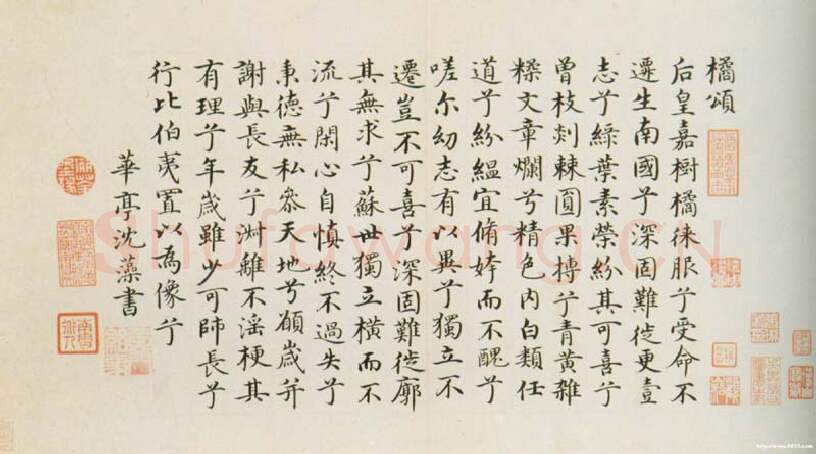 橘頌
后皇嘉樹橘徠服兮受命不
遷生南國兮深固難徙更壹
志兮綠葉素榮紛其可喜兮
曾枝剡棘圓果摶兮青黃雜
糅文章爛兮精色內白類任
道兮紛緼宜脩姱而不醜兮
嗟尔幼志有以異兮獨立不
遷豈不可喜兮深固難徙廓
其無求兮蘇世獨立橫而不
流兮閑心自慎終不過失兮
秉德無私參天地兮願歲并
謝與長友兮淑離不淫梗其
有理兮年歲雖少可師長兮
行比伯夷置以為像兮
華亭沈藻書
Shufawang.CN